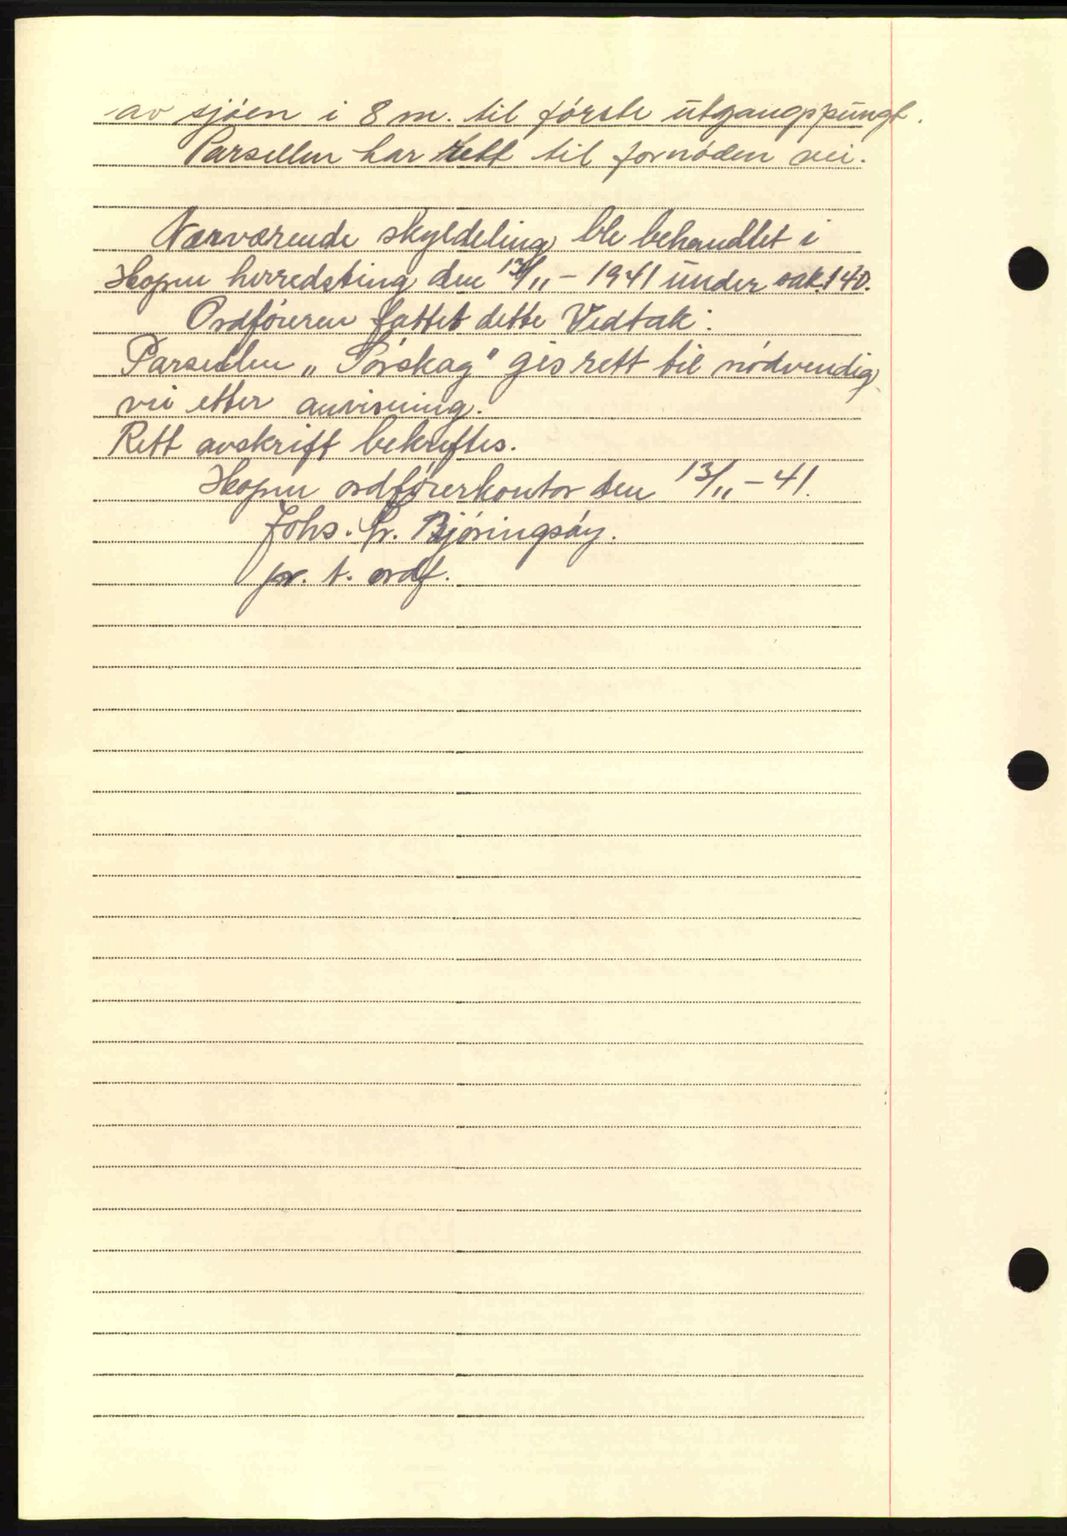 av sjøen i 8 m. til første utgangspungt.
Parsellen har rett til fornøden vei.
Nærværende skyldeling ble behandlet i
Hopen herredsting den 13/11 - 1941 under sak. 140.
Ordføreren fattet dette Vedtak:
Parsellen „Sørskag" gis rett til nødvendig
vei etter anvisning.
Rett avskrift bekreftes.
Hopen ordførerkontor den 13/11 - 41.
Johs. Bjøringsøy.
pr. t. ordf.